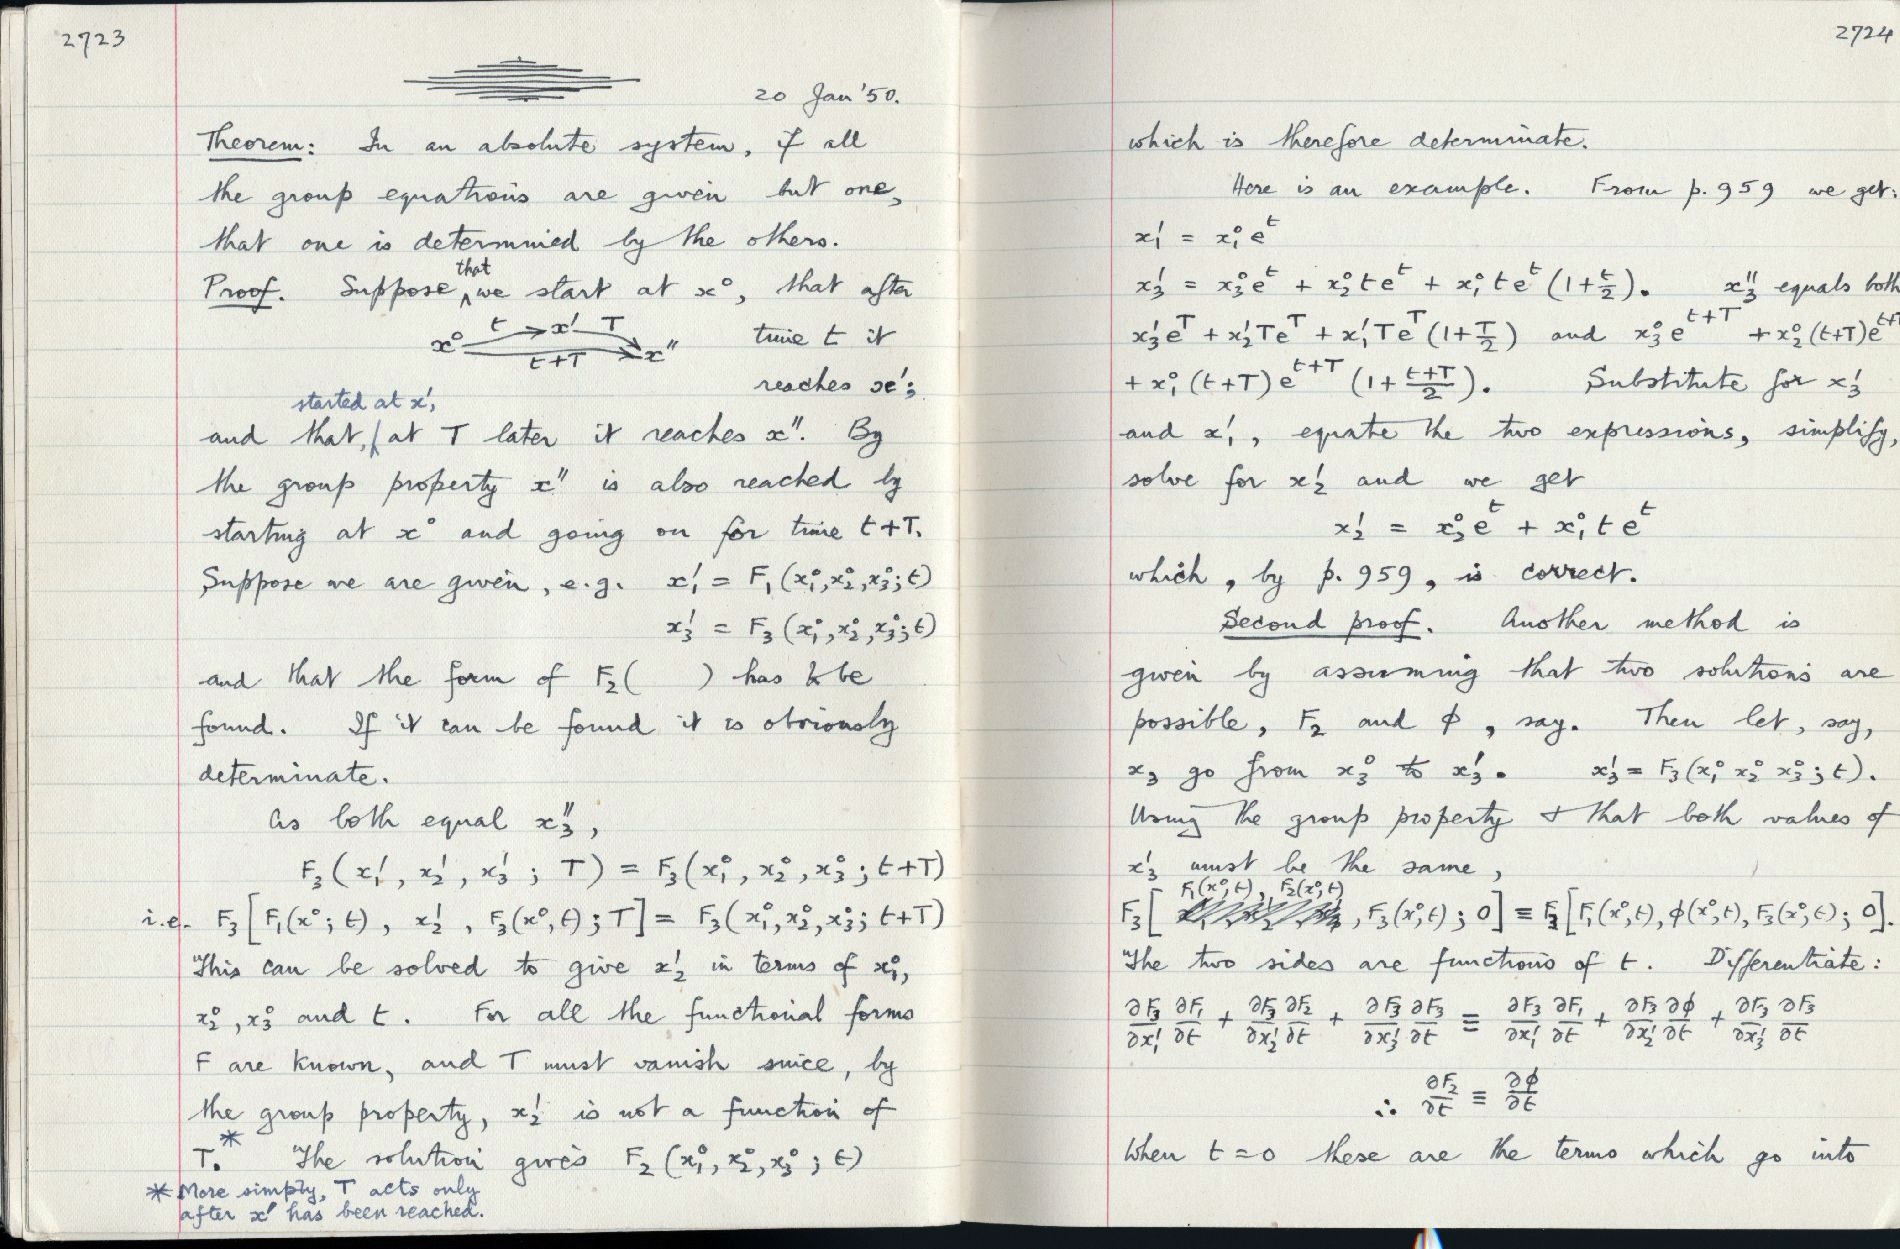 2723
20 Jan '50.
Theorem: In an absolute system, if all
the group equations are given but one,
that one is determined by the others.
that
Proof. Suppose ‸ we start at x⁰, that after
x⁰ t x' T x'' t+T time t it
reaches x';
started at x',
and that, at T later it reaches x''. By
the group property x'' is also reached by
starting at x⁰ and going on for time t+T.
Suppose we are given, e.g. x₁' = F₁(x₁⁰, x₂⁰, x₃⁰; t)
x₃' = F₃(x₁⁰, x₂⁰, x₃⁰; t)
and that the form of F₂( ) has to be
found. If it can be found it is obviously
determinate.
As both equal x₃'',
F₃(x₁', x₂', x₃'; T) = F₃(x₁⁰, x₂⁰, x₃⁰; t+T)
i.e. F₃[F₁(x⁰; t), x₂', F₃(x⁰, t); T] = F₃(x₁⁰, x₂⁰, x₃⁰; t+T)
This can be solved to give x₂' in terms of x₁⁰,
x₂⁰, x₃⁰ and t. For all the functional forms
F are known, and T must vanish since, by
the group property, x₂' is not a function of
T.* The solution gives F₂(x₁⁰, x₂⁰, x₃⁰; t)
* More simply, T acts only
after x' has been reached.
2724
which is therefore determinate.
Here is an example. From p. 959 we get:
x₁' = x₁⁰ eᵗ
x₃' = x₃⁰ eᵗ + x₂⁰ t eᵗ + x₁⁰ t eᵗ (1 + t/2). x₃'' equals both
x₃' eᵀ + x₂' T eᵀ + x₁' T eᵀ (1 + T/2) and x₃⁰ e^(t+T) + x₂⁰ (t+T) e^(t+T)
+ x₁⁰ (t+T) e^(t+T) (1 + (t+T)/2). Substitute for x₃'
and x₁', equate the two expressions, simplify,
solve for x₂' and we get
x₂' = x₂⁰ eᵗ + x₁⁰ t eᵗ
which, by p. 959, is correct.
Second proof. Another method is
given by assuming that two solutions are
possible, F₂ and ϕ, say. Then let, say,
x₃ go from x₃⁰ to x₃'. x₃' = F₃(x₁⁰ x₂⁰ x₃⁰; t).
Using the group property + that both values of
x₃' must be the same,
F₁(x⁰, t), F₂(x⁰, t)
F₃[ , F₃(x⁰, t); 0] ≡ F₃[F₁(x⁰, t), ϕ(x⁰, t), F₃(x⁰, t); 0].
The two sides are functions of t. Differentiate:
∂F₃/∂x₁' ∂F₁/∂t + ∂F₃/∂x₂' ∂F₂/∂t + ∂F₃/∂x₃' ∂F₃/∂t ≡ ∂F₃/∂x₁' ∂F₁/∂t + ∂F₃/∂x₂' ∂ϕ/∂t + ∂F₃/∂x₃' ∂F₃/∂t
∴ ∂F₂/∂t ≡ ∂ϕ/∂t
When t = 0 these are the terms which go into